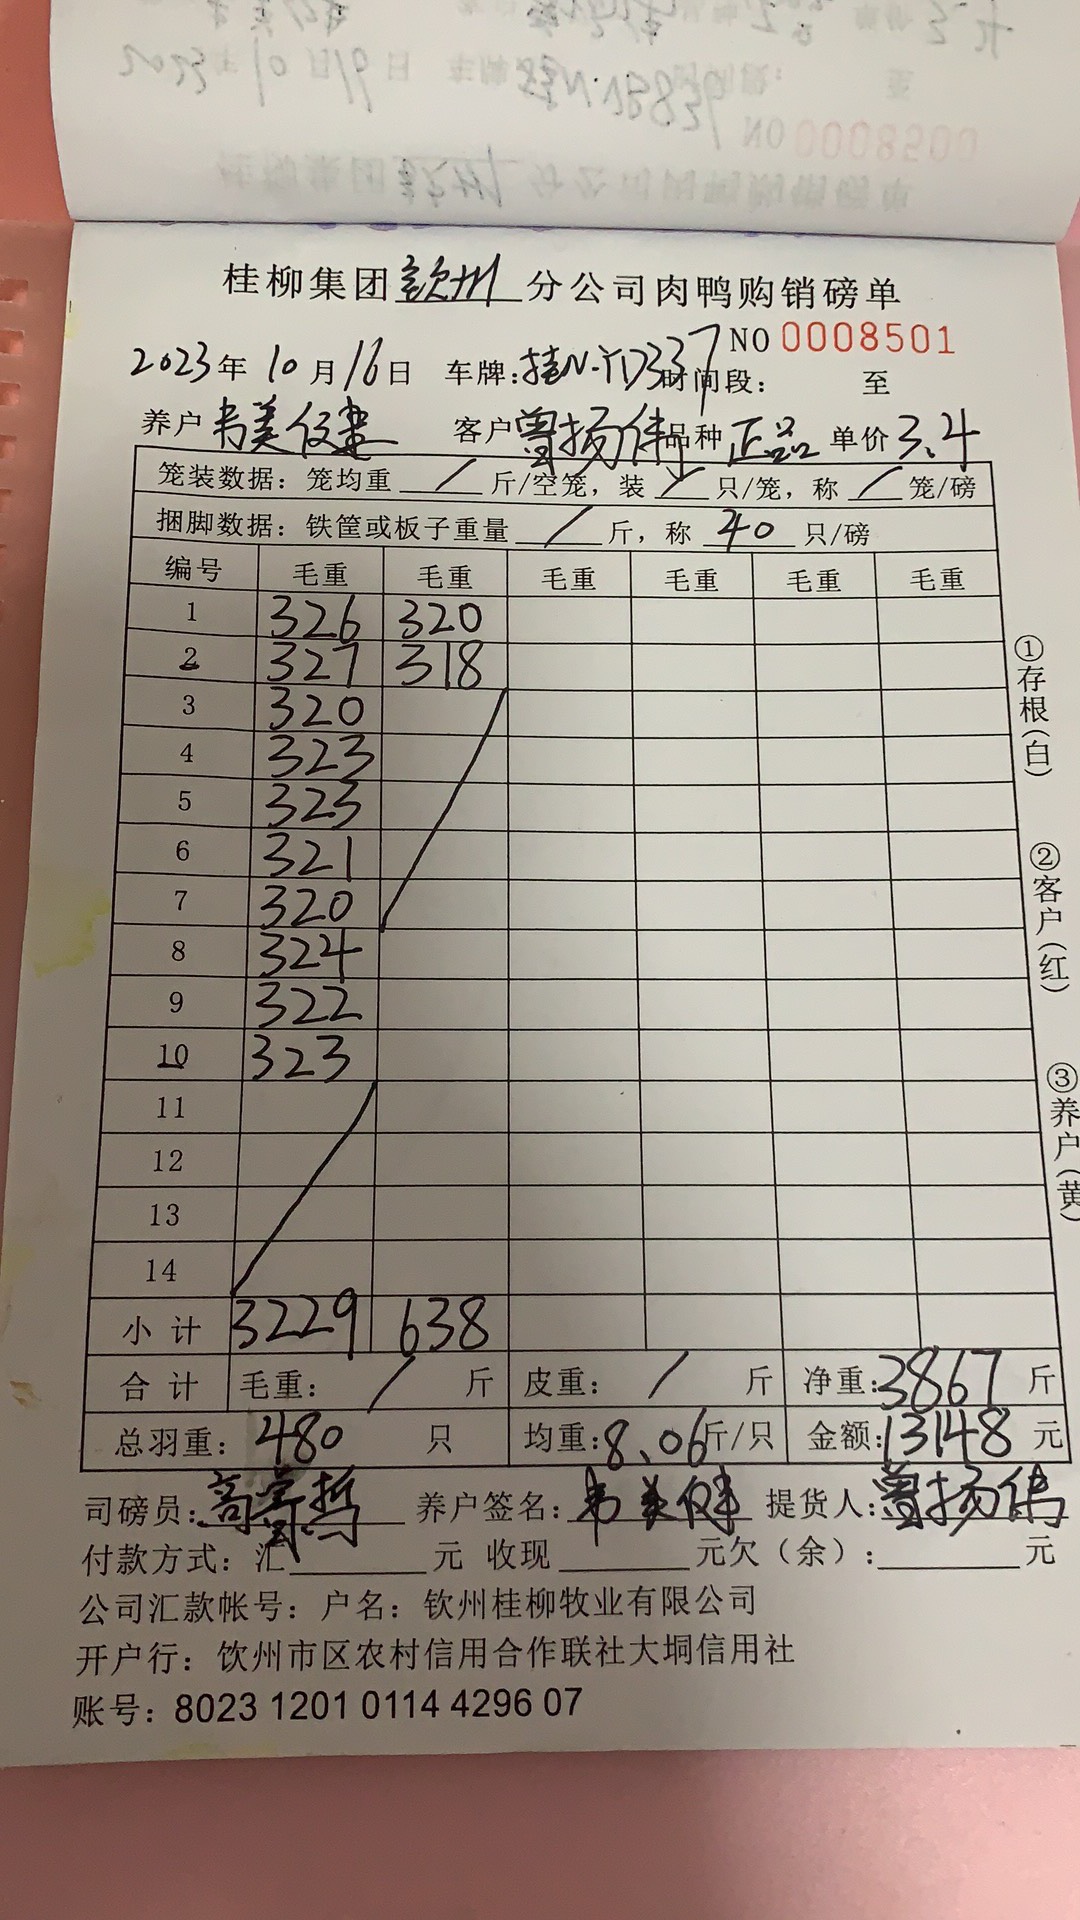 桂柳集团钦州分公司肉鸭购销磅单
NO 0008501
2023年 10月16日 车牌:桂N·YD337 时间段: 至
养户 韦美健 客户 曾扬伟 品种 正品 单价 3.4
笼装数据：笼均重 / 斤/空笼，装 / 只/笼，称 / 笼/磅
捆脚数据：铁筐或板子重量 / 斤，称 40 只/磅
编号 毛重 毛重 毛重 毛重 毛重 毛重
1 326 320
2 327 318
3 320
4 323
5 323
6 321
7 320
8 324
9 322
10 323
11
12
13
14
小计 3229 638
合计 毛重: / 斤 皮重: / 斤 净重:3867 斤
总羽重: 480 只 均重:8.06斤/只 金额:13148 元
司磅员: 养户签名:韦美健 提货人:曾扬伟
付款方式：汇 元 收现 元欠（余）: 元
公司汇款帐号：户名：钦州桂柳牧业有限公司
开户行：饮州市区农村信用合作联社大垌信用社
账号：8023 1201 0114 4296 07
①存根(白)
②客户(红)
③养户(黄)
NO 0008500